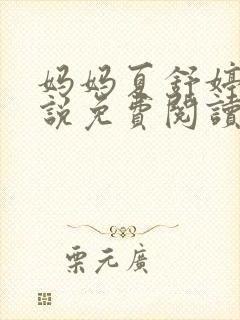 妈妈夏舒婷
說免費閱讀
栗元廣